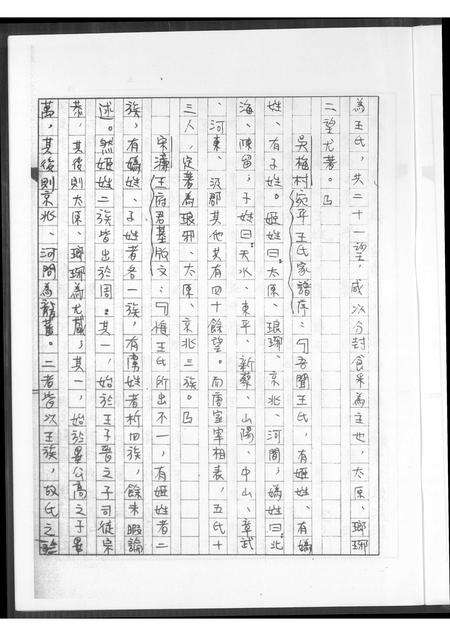 為王氏，共二十一望，咸以分封食采為主也，太原、瑯琊
二望尤著。」
吳梅村宛平王氏家譜序：「吾聞王氏，有姬姓、有媯
姓、有子姓。姬姓曰：太原、琅琊、京兆、河間，媯姓曰：北
海、陳留；子姓曰：天水、東平、新蔡、山陽、中山、章武
、河東、汲郡其他共有四十餘望。而唐室宰相表，王氏十
三人，定著為琅邪、太原、京兆三族。」
宋濂王府君墓版文：「惟王氏所出不一，有姬姓者二
族，有媯姓、子姓者各一族，有虜姓者析四族，餘未暇論
述。然姬姓二族皆出於周。其一，始於王子晉之子司徒宗
恭，其後則太原、瑯琊為尤蕃，其一，始於畢公高之子畢
萬，其後則京兆、河間為龍蕃。二者皆以王族，故氏之